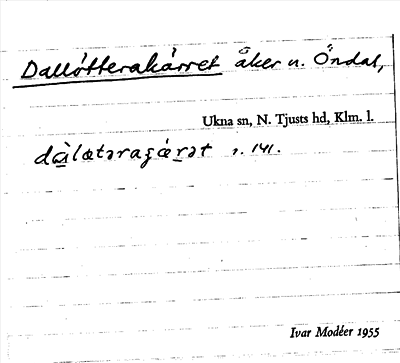 Dallötterakärret åker n. Öndal,
Ukna sn, N. Tjusts hd, Klm. l.
dàlætəragæ̀rət s. 141.
Ivar Modéer 1955